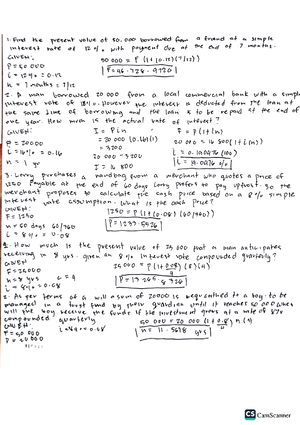 1. Find the present value of 50,000 borrowed from a friend at a simple
interest rate of 12% with payment due at the end of 7 months.
GIVEN:
50 000 = P (1+(0.12)(7/12))
F = 50 000
i = 12% = 0.12
P = 46 728.9720
n = 7 months = 7/12
2. A man borrowed 20 000 from a local commercial bank with a simple
interest rate of 16%. However the interest is deducted from the loan at
the same time of borrowing and the loan is to be repaid at the end of
one year. How much is the actual rate of interest?
GIVEN:
I = Pin
F = P(1+in)
P = 20000
= 20 000 (0.16)(1)
20 000 = 16 800 (1+i(1))
i = 16% = 0.16
= 3200
n = 1 yr
20 000 - 3200
I = 16 800
3. Lorry purchases a handbag from a merchant who quotes a price of
1250 Payable at the end of 60 days. Lorry prefers to pay upfront. So the
merchant purposes to calculate the cash price based on a 8% simple
interest rate assumption. What is the cash price?
GIVEN:
1250 = P(1+(0.08)(60/360))
F = 1250
n = 60 days 60/360
i = 8% = 0.08
1. How much is the present value of 25 000 that a man anticipates
receiving in 8 yrs. given an 8% interest rate compounded quarterly?
GIVEN:
F = 25000
n = 8 yrs
i = 8% = 0.08
2. As per terms of a will a sum of 20000 is bequeathed to a boy to be
managed in a trust fund by guardian until it reaches 50 000 when
will the boy receive the funds if the investment grows at a rate of 8%
compounded quarterly
GIVEN:
F = 50 000
CS CamScanner